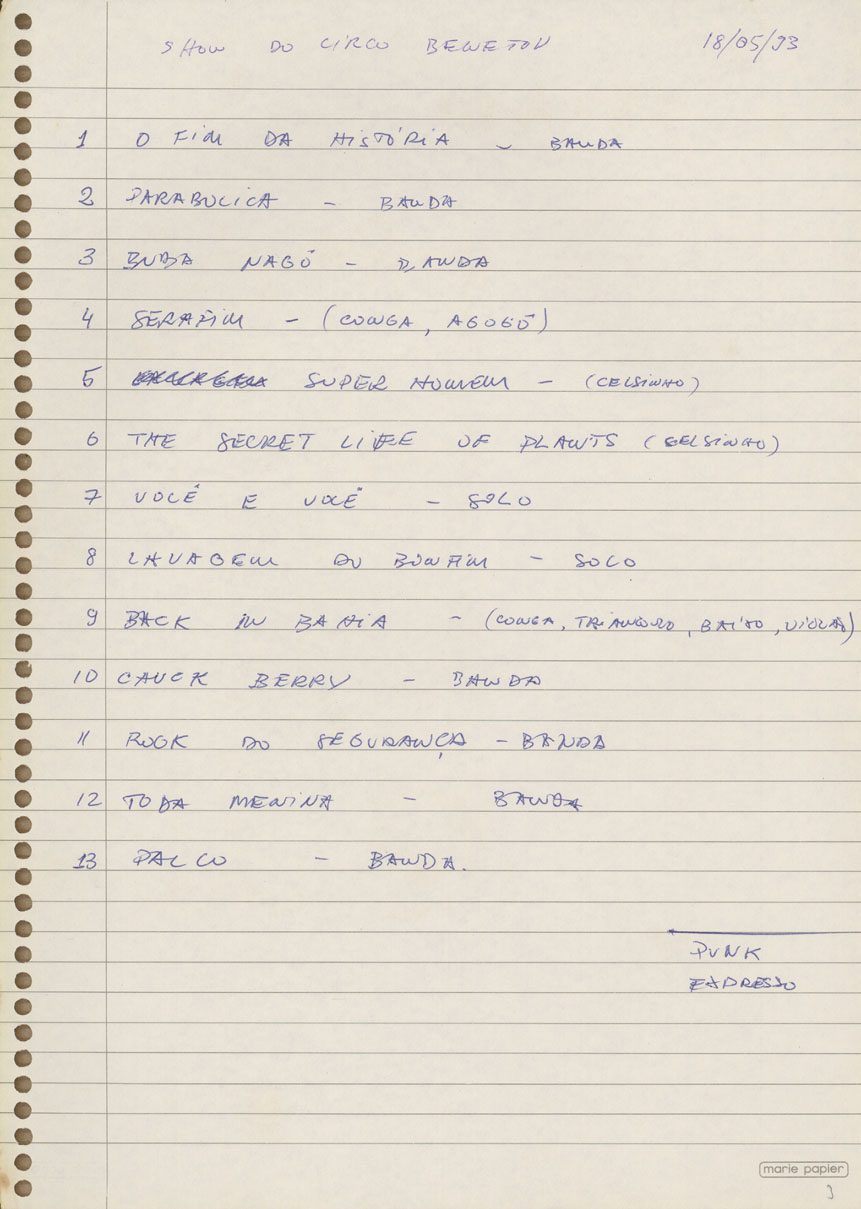 SHOW DO CIRCO BENETON 18/05/93
1 O FIM DA HISTÓRIA - BANDA
2 PARABOLICA - BANDA
3 BUDA NAGÔ - BANDA
4 SERAFIM - (CONGA, AGOGÔ)
5 SUPER HOMEM - (CELSINHO)
6 THE SECRET LIFE OF PLANTS (CELSINHO)
7 VOCÊ E VOCÊ - SOLO
8 LAVAGEM DO BONFIM - SOLO
9 BACK IN BAHIA - (CONGA, TRIANGULO, BAIXO, VIOLÃO)
10 CHUCK BERRY - BANDA
11 ROCK DO SEGURANÇA - BANDA
12 TODA MENINA - BANDA
13 PALCO - BANDA.
PUNK
EXPRESSO
marie papier